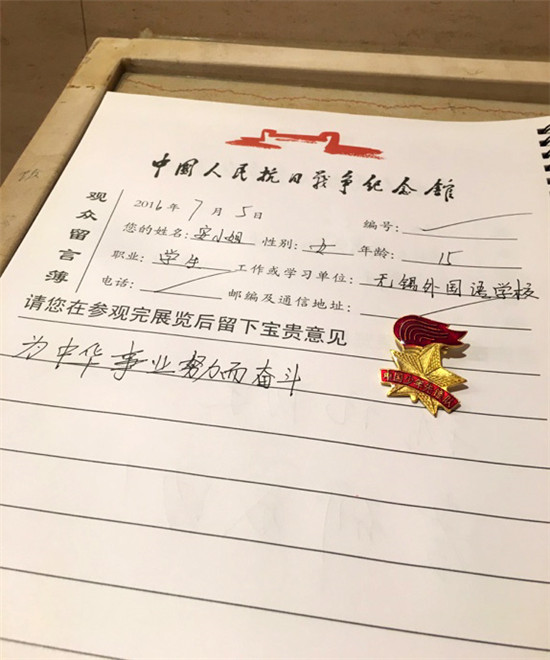 中国人民抗日战争纪念馆
观众留言簿
2016年7月5日 编号:
您的姓名:安小姐 性别:女 年龄:15
职业:学生 工作或学习单位:无锡外国语学校
电话: 邮编及通信地址:
请您在参观完展览后留下宝贵意见
为中华事业努力而奋斗
中国少年先锋队